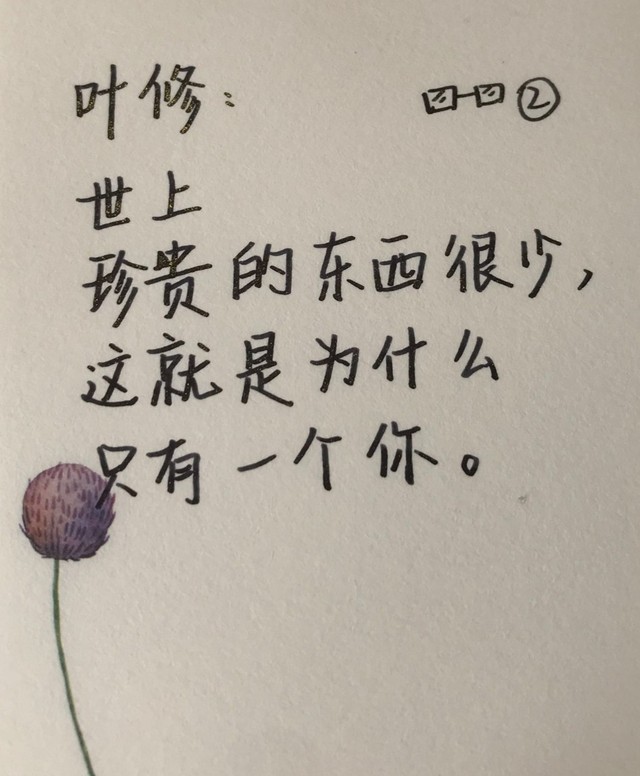 叶修： ②
世上
珍贵的东西很少，
这就是为什么
只有一个你。